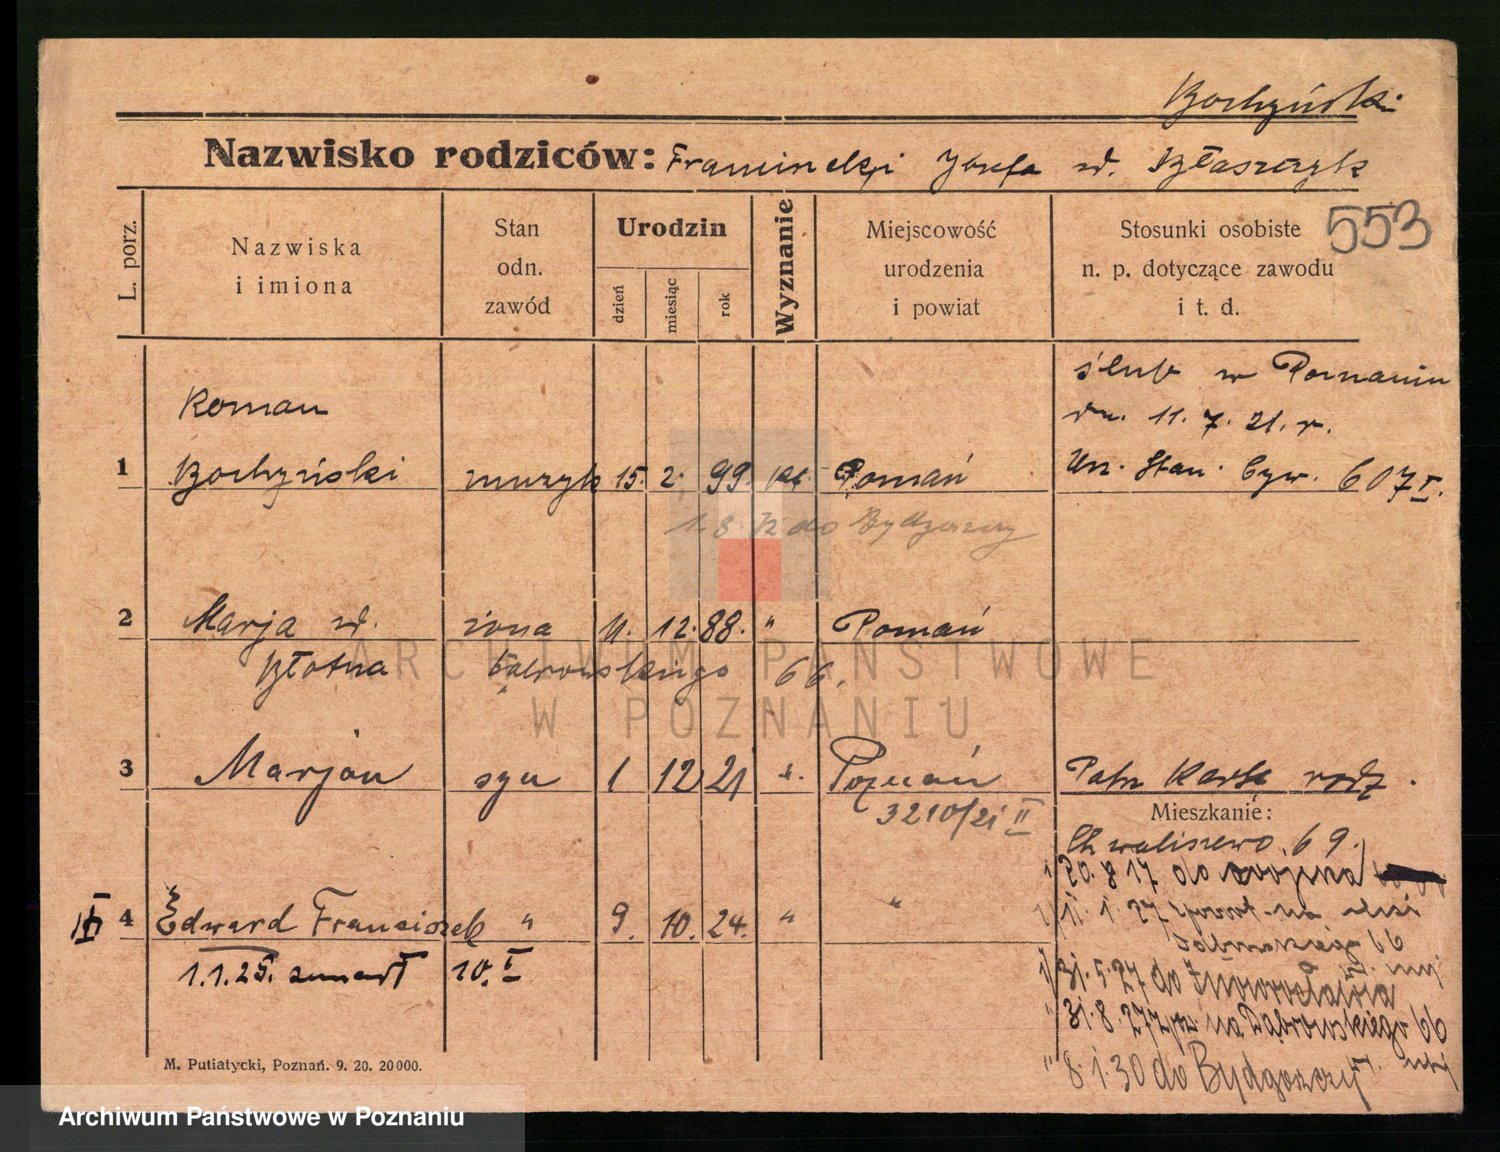 Bochyński
Nazwisko rodziców: Józefa
553
L. porz.
Nazwiska
i imiona
Stan
odn.
zawód
Urodzin
dzień
miesiąc
rok
Wyznanie
Miejscowość
urodzenia
i powiat
Stosunki osobiste
n. p. dotyczące zawodu
i t. d.
ślub w Poznaniu
dn. 11. 7. 21. r.
Roman
1 Bochyński muzyk 15. 2. 99. kt. Poznań
Urz. Stan. Cyw. 607 I.
do Bydgoszczy
2 Marja żona 11. 12. 88. " Poznań
66.
ARCHIWUM PAŃSTWOWE
W POZNANIU
3 Marjan syn 1 12 21 Poznań
3210/21 II
Mieszkanie:
Chwaliszewo 69.
20. 8. 17 do
11. 1. 27 na
66
III 4 Edward Franciszek " 9. 10. 24. " "
1.1.25. zmarł 10. I
31. 5. 27 do Inowrocławia
31. 8. 27 na Dąbrowskiego 66
" 8. 1. 30 do Bydgoszczy
M. Putiatycki, Poznań. 9. 20. 20000.
Archiwum Państwowe w Poznaniu